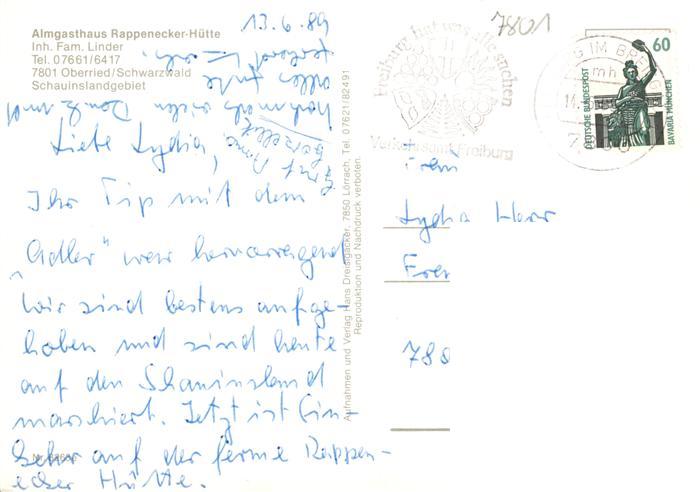 Almgasthaus Rappenecker-Hütte
Inh. Fam. Linder
Tel. 07661/6417
7801 Oberried/Schwarzwald
Schauinslandgebiet
13.6.89
Liebe Lydia,
Ihr Tip mit dem
„Adler" war hervorragend
Wir sind bestens aufge-
hoben und sind heute
auf den Schauinsland
marschiert. Jetzt ist Ein-
kehr auf der ferme Rappen-
ecker Hütte.
nochmals vielen Dank und
alles Gute
Aufnahmen und Verlag Hans Dreisigacker, 7850 Lörrach, Tel. 07621/82491
Reproduktion und Nachdruck verboten.
7801
Freiburg hat was alle suchen
Verkehrsamt Freiburg
G IM BR
60
DEUTSCHE BUNDESPOST
BAVARIA MÜNCHEN
Frau
Lydia
Frei
780